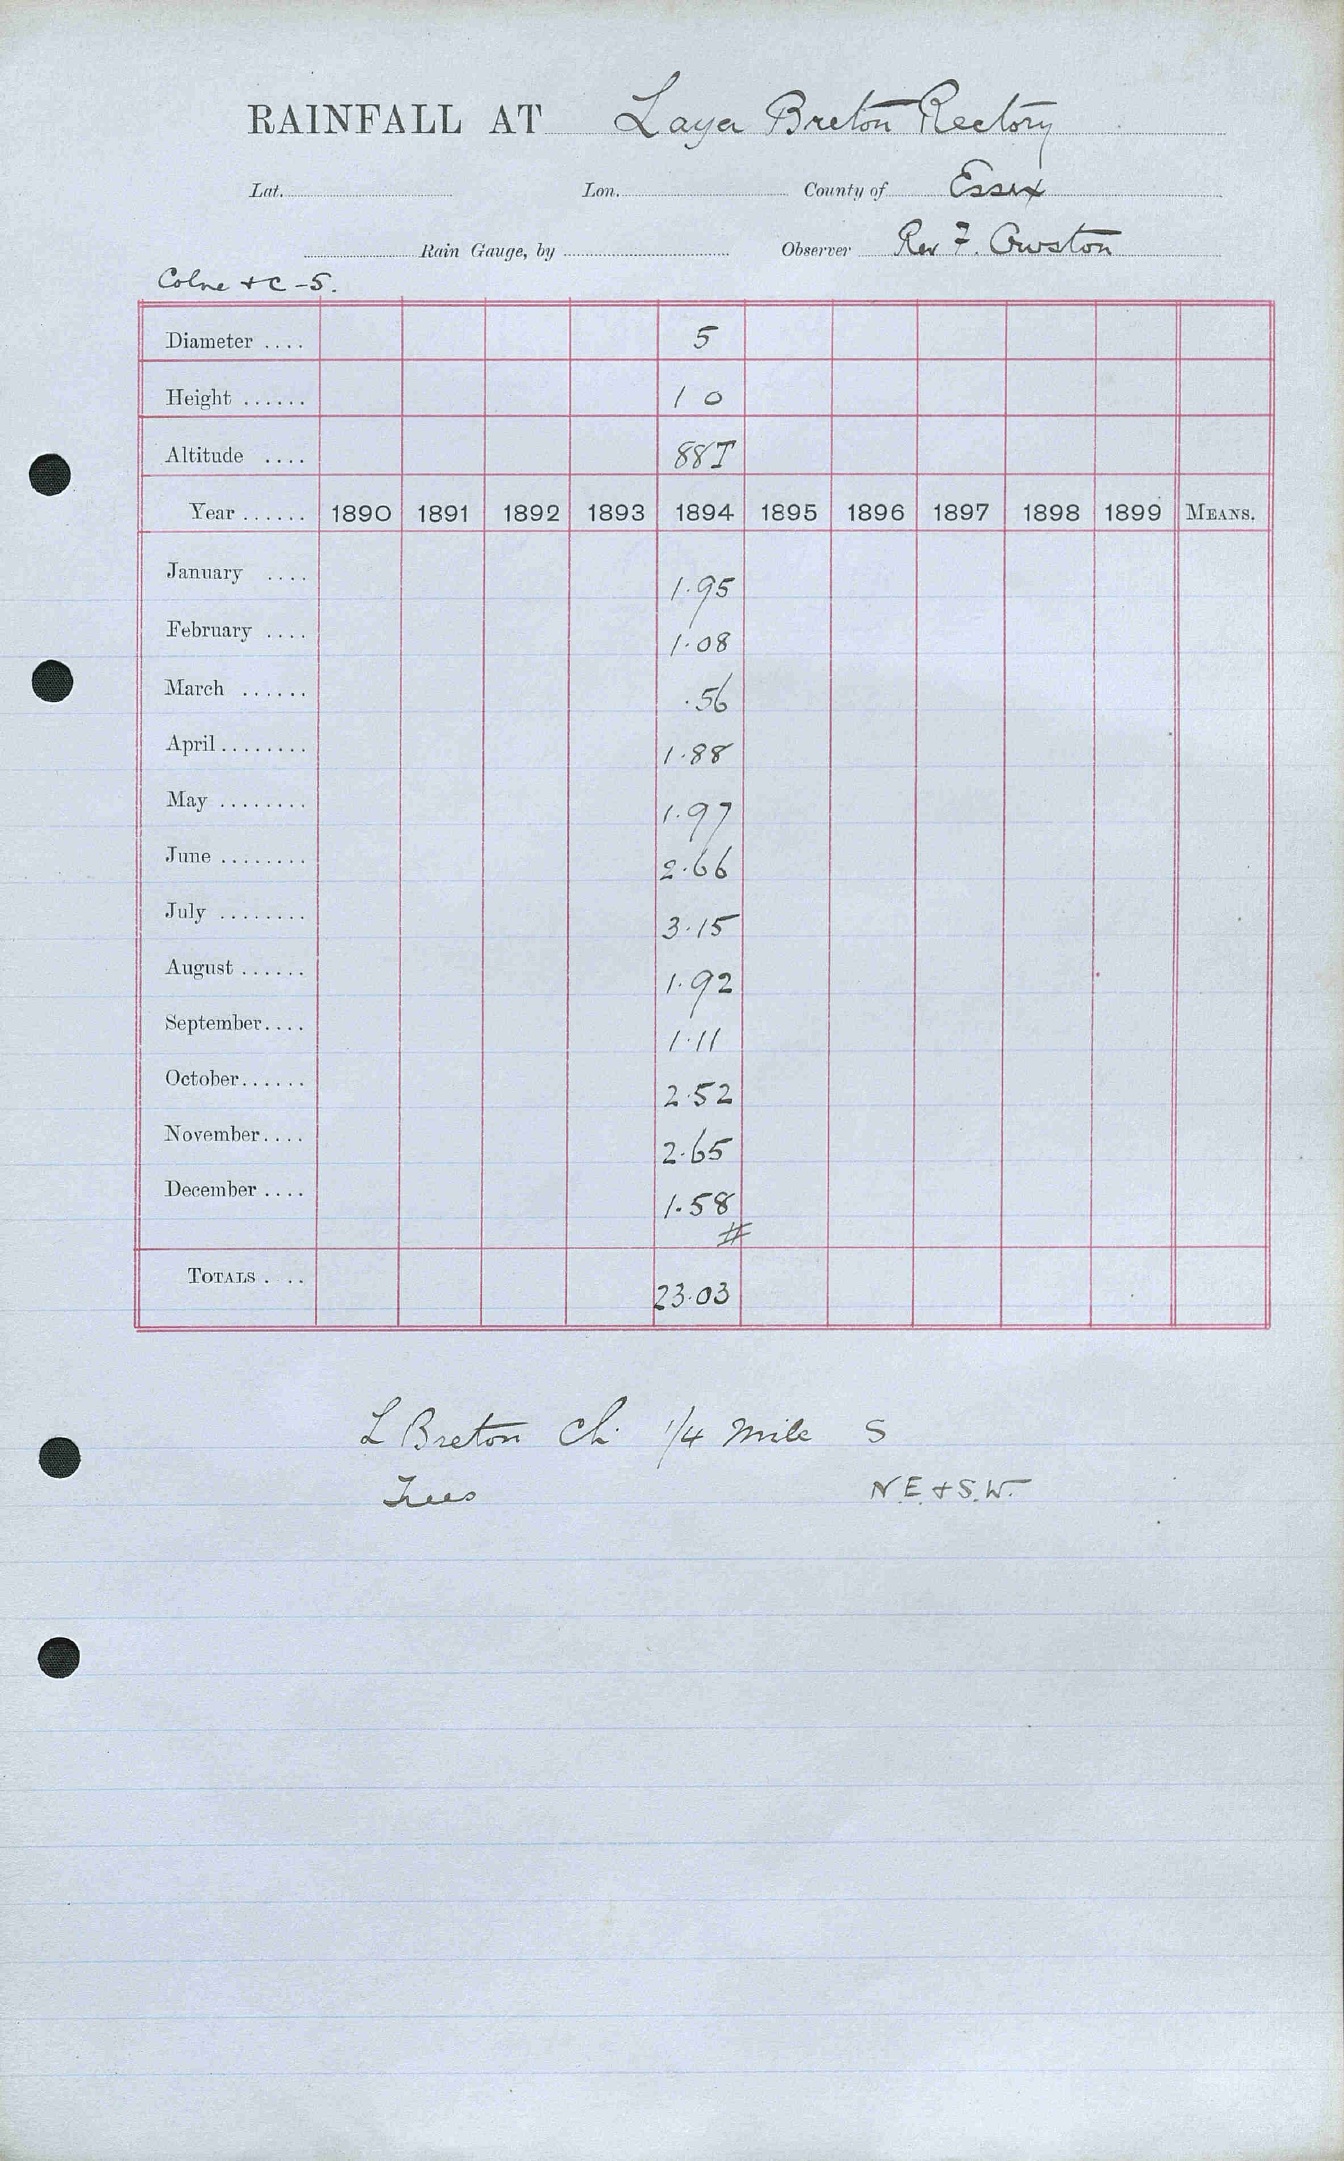 RAINFALL AT Layer Breton Rectory
Lat. Lon. County of Essex
Rain Gauge, by Observer Rev F. Owston
Colne & C - 5.
Diameter .... 5
Height ...... 1 0
Altitude .... 88T
Year ...... 1890 1891 1892 1893 1894 1895 1896 1897 1898 1899 MEANS.
January .... 1.95
February .... 1.08
March ...... .56
April ........ 1.88
May ........ 1.97
June ........ 2.66
July ........ 3.15
August ...... 1.92
September.... 1.11
October...... 2.52
November.... 2.65
December .... 1.58
#
TOTALS . .. 23.03
L Breton Ch. 1/4 Mile S
Trees N.E. & S.W.